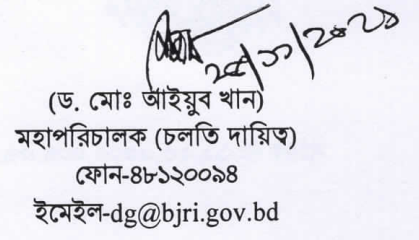 (ড. মোঃ আইয়ুব খান)
মহাপরিচালক (চলতি দায়িত্ব)
ফোন-৪৮১২০০৯৪
ইমেইল-dg@bjri.gov.bd